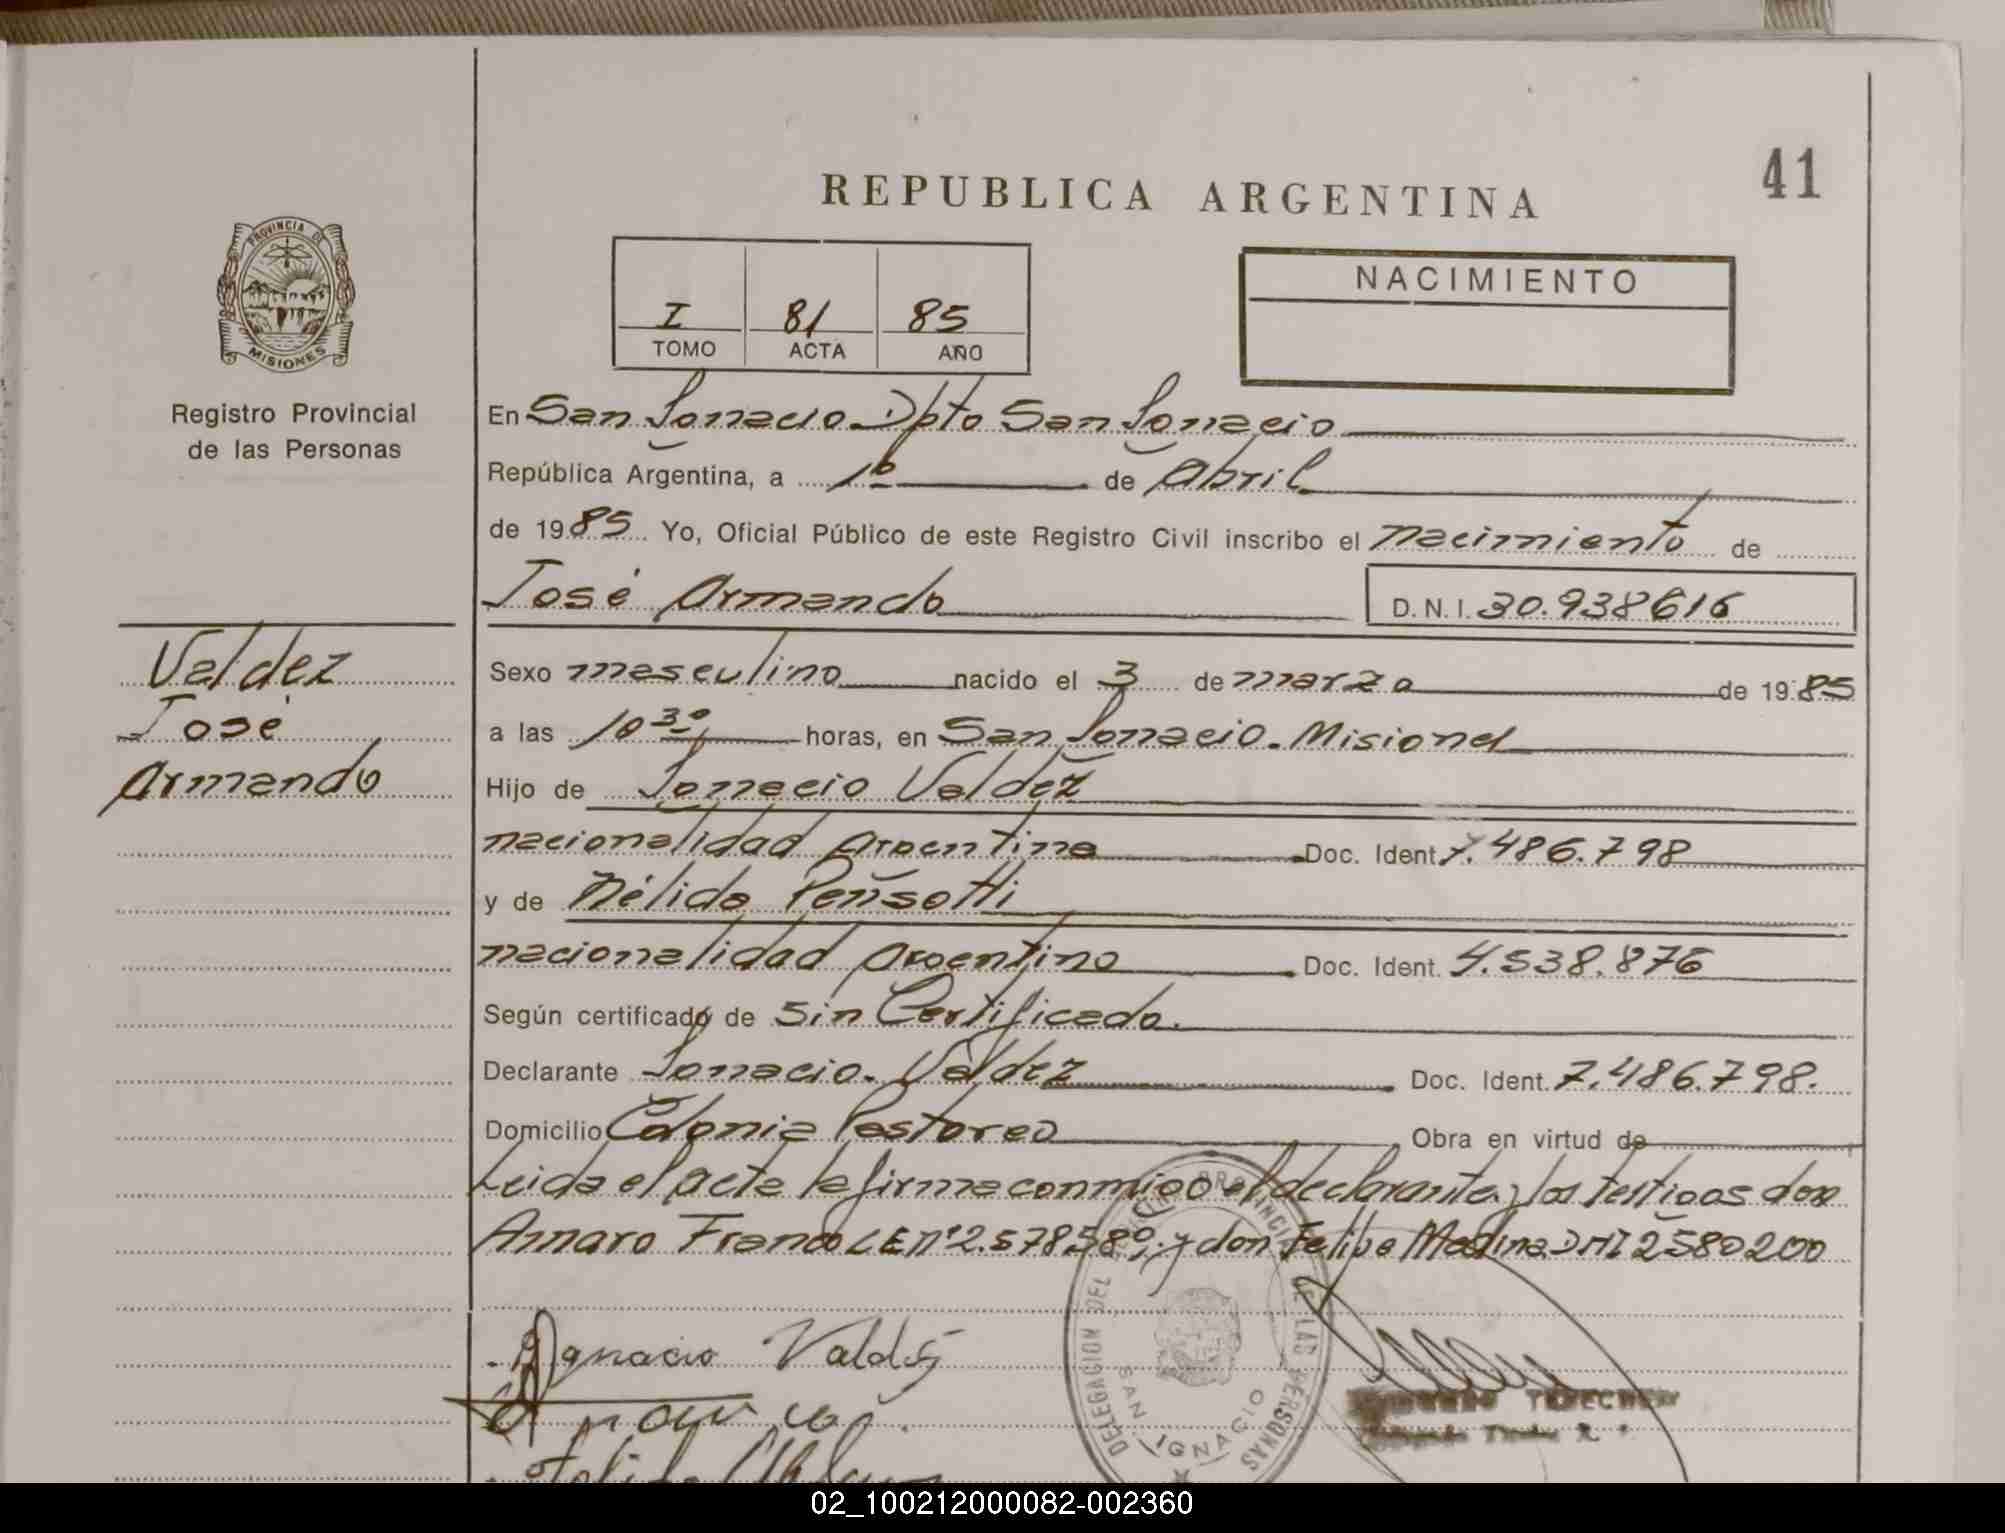 41
REPUBLICA ARGENTINA
PROVINCIA DE
MISIONES
Registro Provincial
de las Personas
I 81 85
TOMO ACTA AÑO
NACIMIENTO
En San Ignacio Dpto San Ignacio
República Argentina, a 1º de Abril
de 1985 Yo, Oficial Público de este Registro Civil inscribo el nacimiento de
José Armando D.N.I. 30.938616
Valdez
José
Armando
Sexo masculino nacido el 3 de marzo de 1985
a las 10 30 horas, en San Ignacio. Misiones
Hijo de Ignacio Valdez
nacionalidad argentina Doc. Ident. 7.486.798
y de Nélida Peñsotti
nacionalidad argentina Doc. Ident. 4.538.876
Según certificado de Sin Certificado.
Declarante Ignacio. Valdez Doc. Ident. 7.486.798.
Domicilio Colonia Pastoreo Obra en virtud de
Leida el acta la firma conmigo el declarante y los testigos don
Amaro Franco LE nº 2.578580; y don Felipe Medina DNI 2580200
Ignacio Valdés
DELEGACION DEL REGISTRO PROVINCIAL DE LAS PERSONAS
SAN IGNACIO
02_100212000082-002360